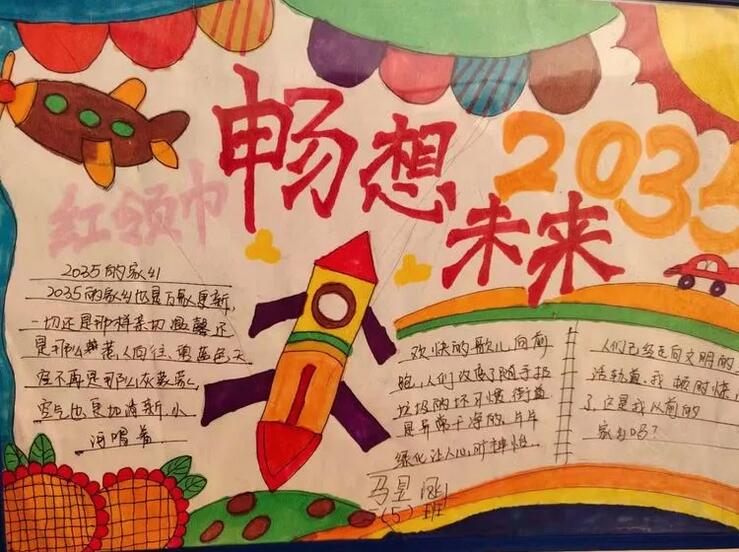 畅想
2035
红领巾
未来
2035的家乡
2035的家乡也是万象更新,
一切还是那样亲切温馨还
是那么 人向往 蓝色天
空不再是那么灰蒙蒙,
空气也更加清新,小
河唱着
欢快的歌儿向前
跑,人们改离了随手扔
垃圾的坏习惯 街道
是异常干净的,片片
绿化让人心旷神怡.
人们已经走向文明的
活轨道,我
了,这是我从前的
家乡吗?
马昱
(5)班